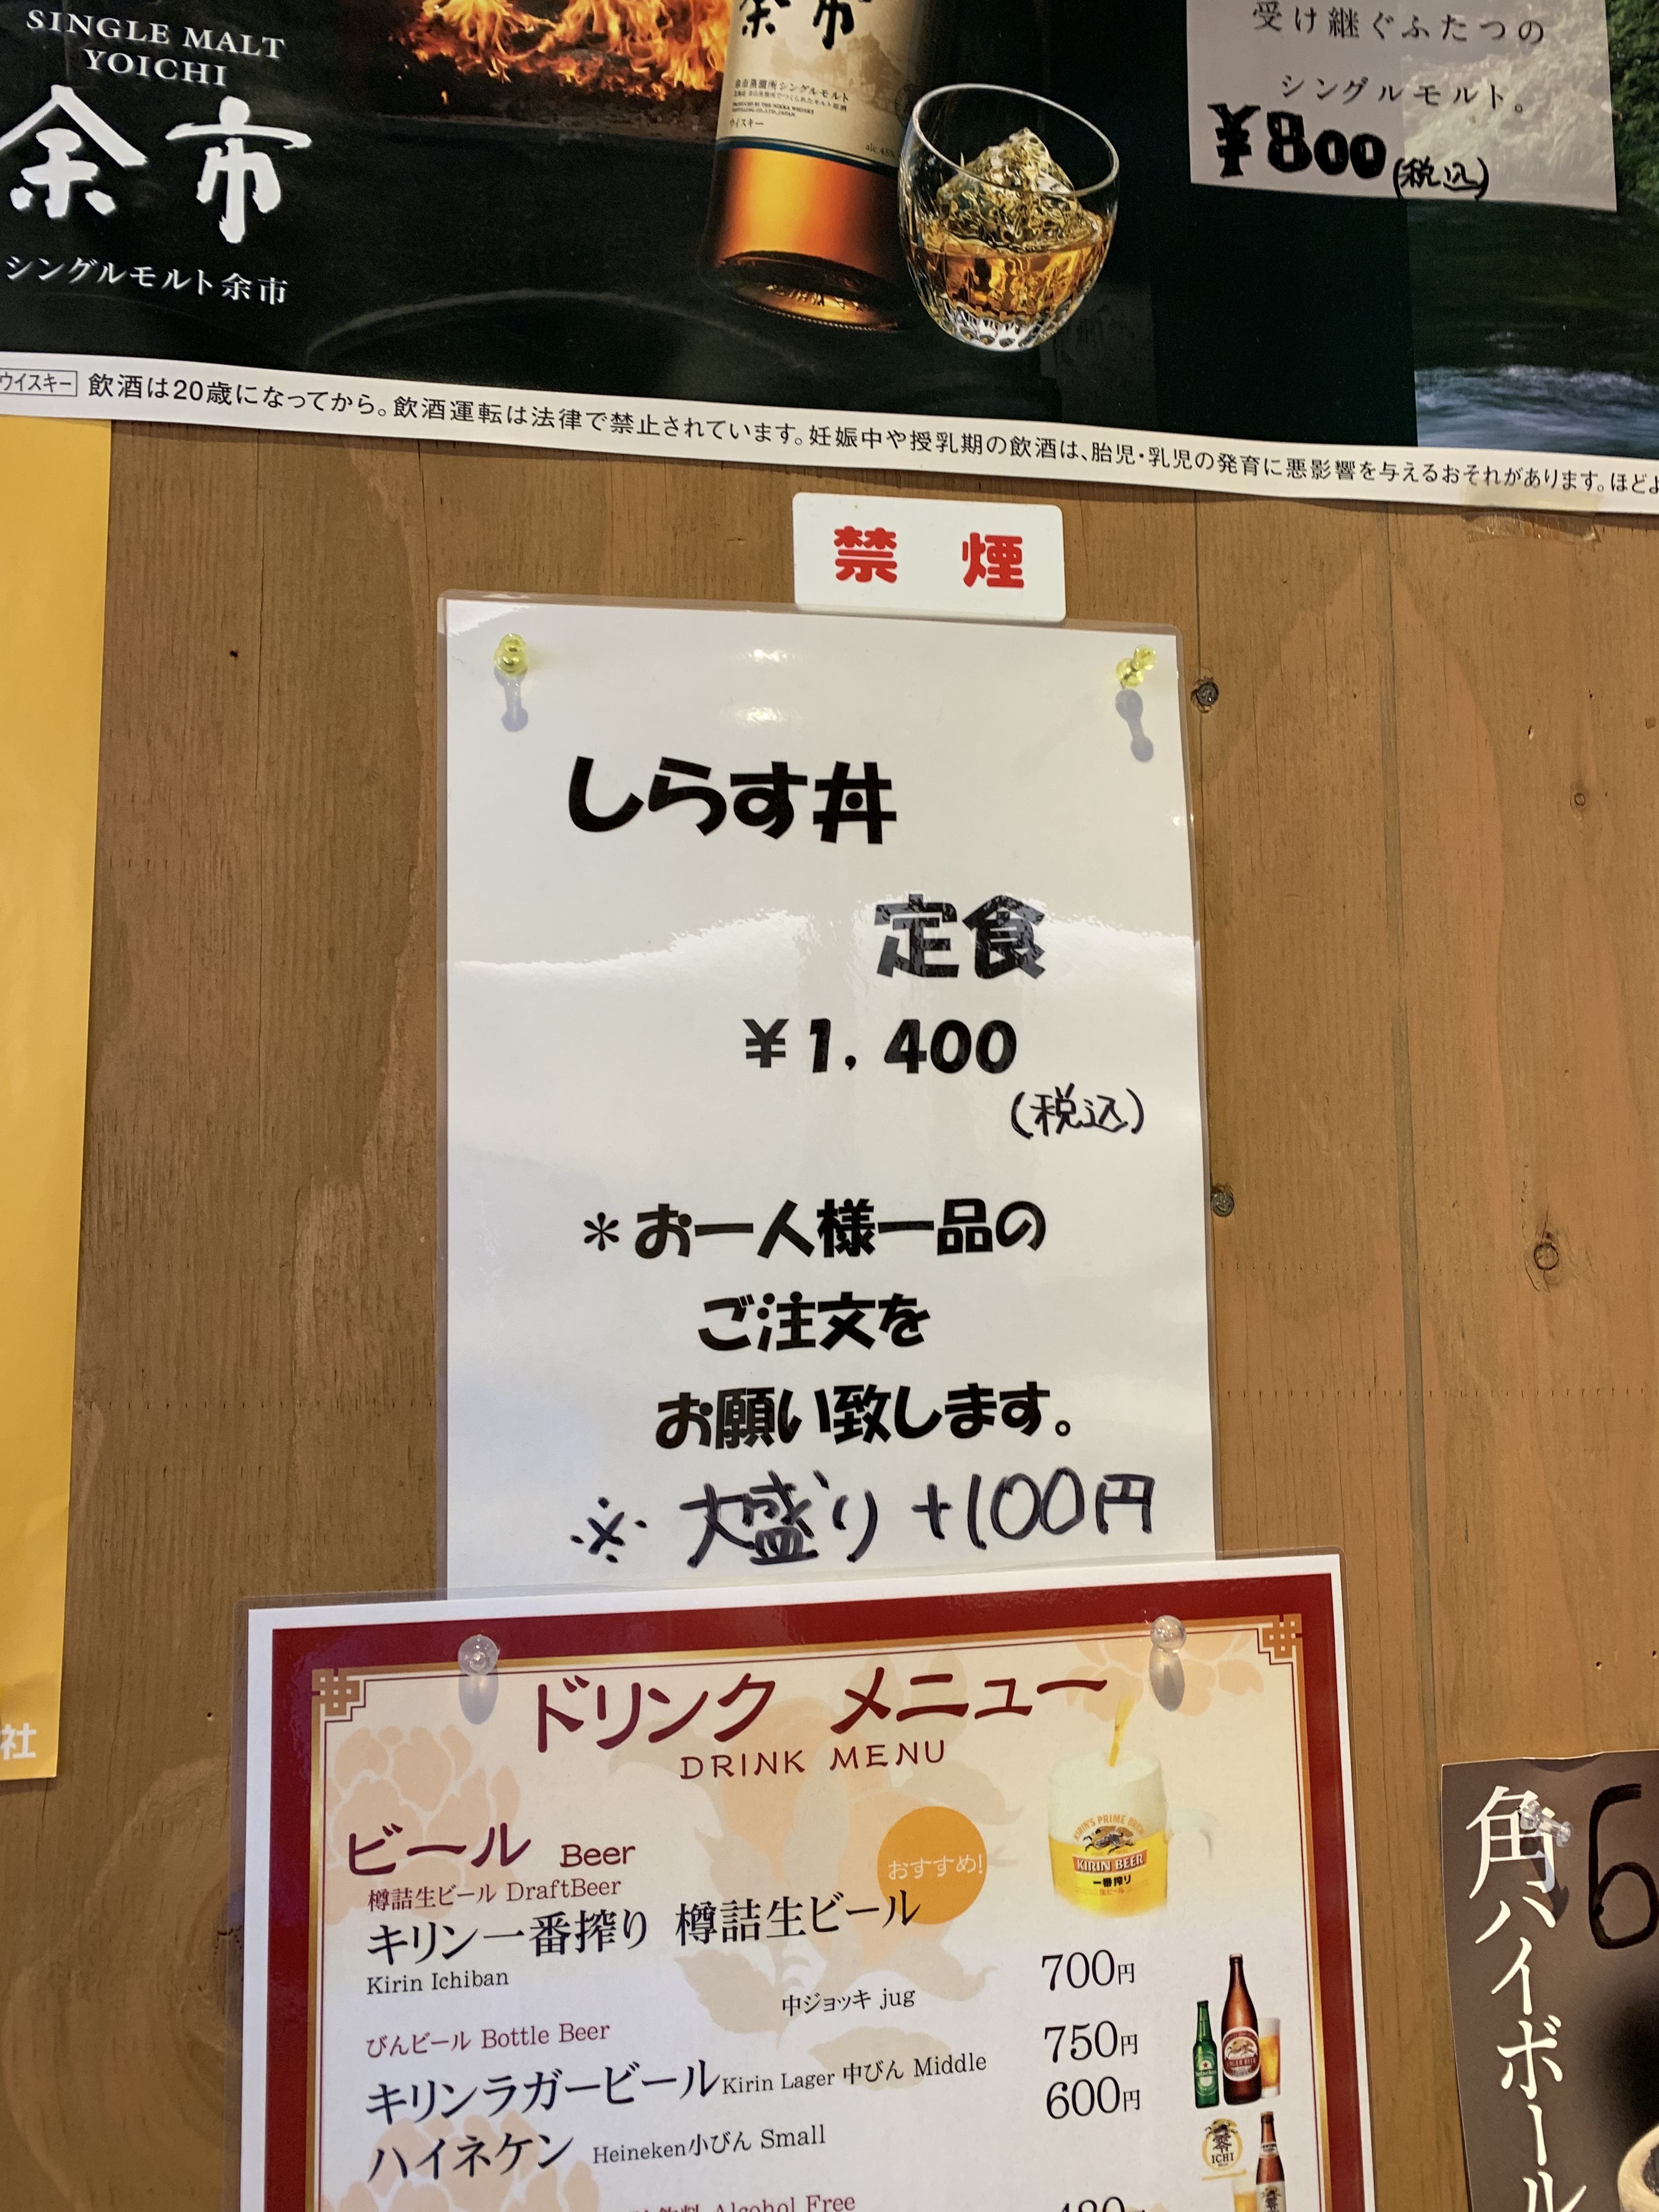 SINGLE MALT
YOICHI
余市
シングルモルト余市
余市
余市蒸溜所シングルモルト
ウイスキー
受け継ぐふたつの
シングルモルト。
¥800(税込)
ウイスキー 飲酒は20歳になってから。飲酒運転は法律で禁止されています。妊娠中や授乳期の飲酒は、胎児・乳児の発育に悪影響を与えるおそれがあります。ほどよ
禁 煙
しらす丼
定食
¥1,400
(税込)
*お一人様一品の
ご注文を
お願い致します。
※ 大盛り +100円
社
ドリンク メニュー
DRINK MENU
ビール Beer
おすすめ!
KIRIN'S PRIME BREW
KIRIN BEER
一番搾り
生ビール
樽詰生ビール DraftBeer
キリン一番搾り 樽詰生ビール
Kirin Ichiban
中ジョッキ jug 700円
びんビール Bottle Beer
キリンラガービール Kirin Lager 中びん Middle 750円
ハイネケン Heineken小びん Small 600円
Alcohol Free
角ハイボール
6